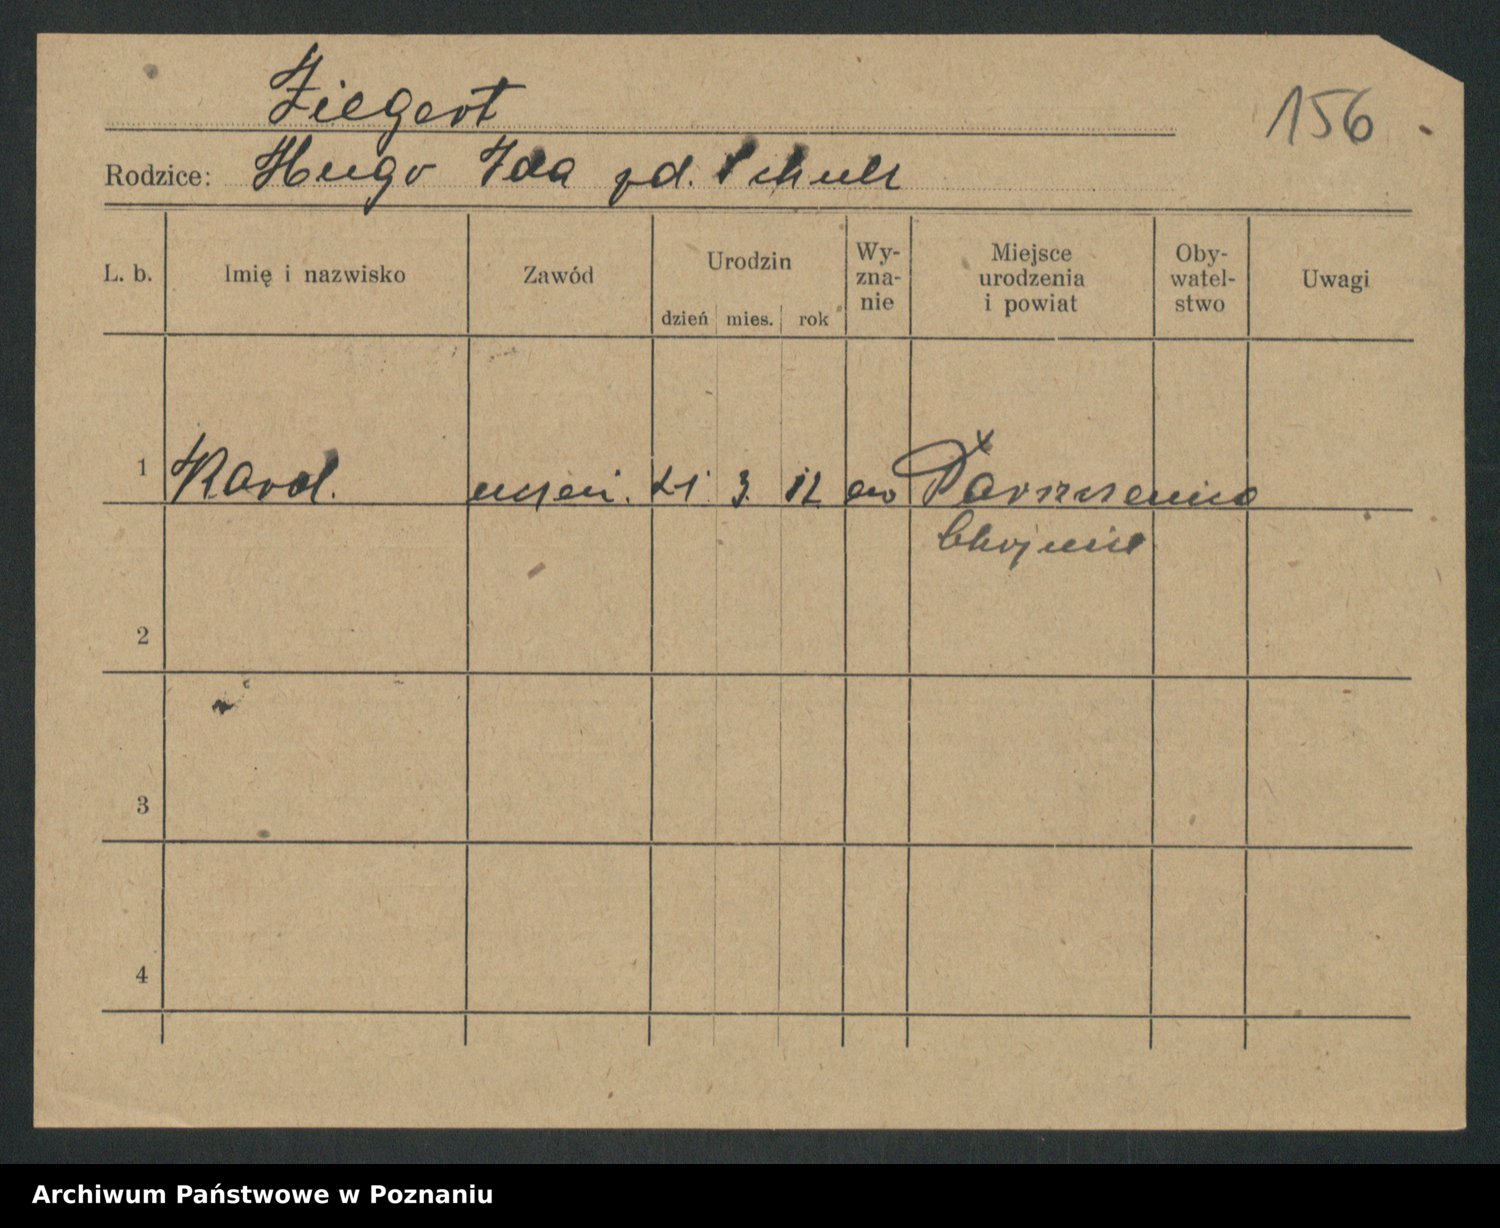 Ziegert
156
Rodzice: Hugo Ida zd. Schulz
L. b. Imię i nazwisko Zawód Urodzin dzień mies. rok Wy-zna-nie Miejsce urodzenia i powiat Oby-watel-stwo Uwagi
1 Karol. uczeń. 21. 3. 12 ew
Chojnice
2
3
4
Archiwum Państwowe w Poznaniu